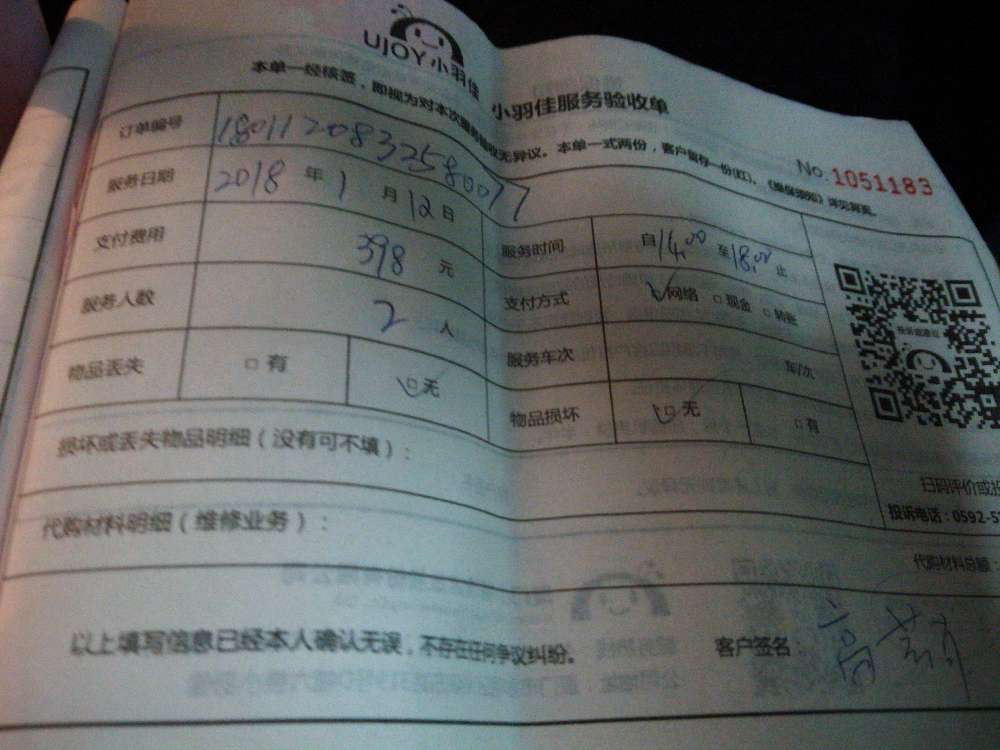 UJOY小羽佳
小羽佳服务验收单
本单一经核签，即视为对本次服务验收无异议。本单一式两份，客户留存一份(红)、《维保须知》详见背面。
No.1051183
订单编号 1801120832580077
服务日期 2018 年 1 月 12 日
服务时间 自 14:00 至 18:00 止
支付费用 398 元
支付方式 网络 现金 转账
服务人数 2 人
服务车次 车/次
物品丢失 有 无
物品损坏 无 有
损坏或丢失物品明细（没有可不填）：
扫码评价或投
投诉电话：0592-5
代购材料明细（维修业务）：
代购材料总额：
以上填写信息已经本人确认无误，不存在任何争议纠纷。
客户签名：高